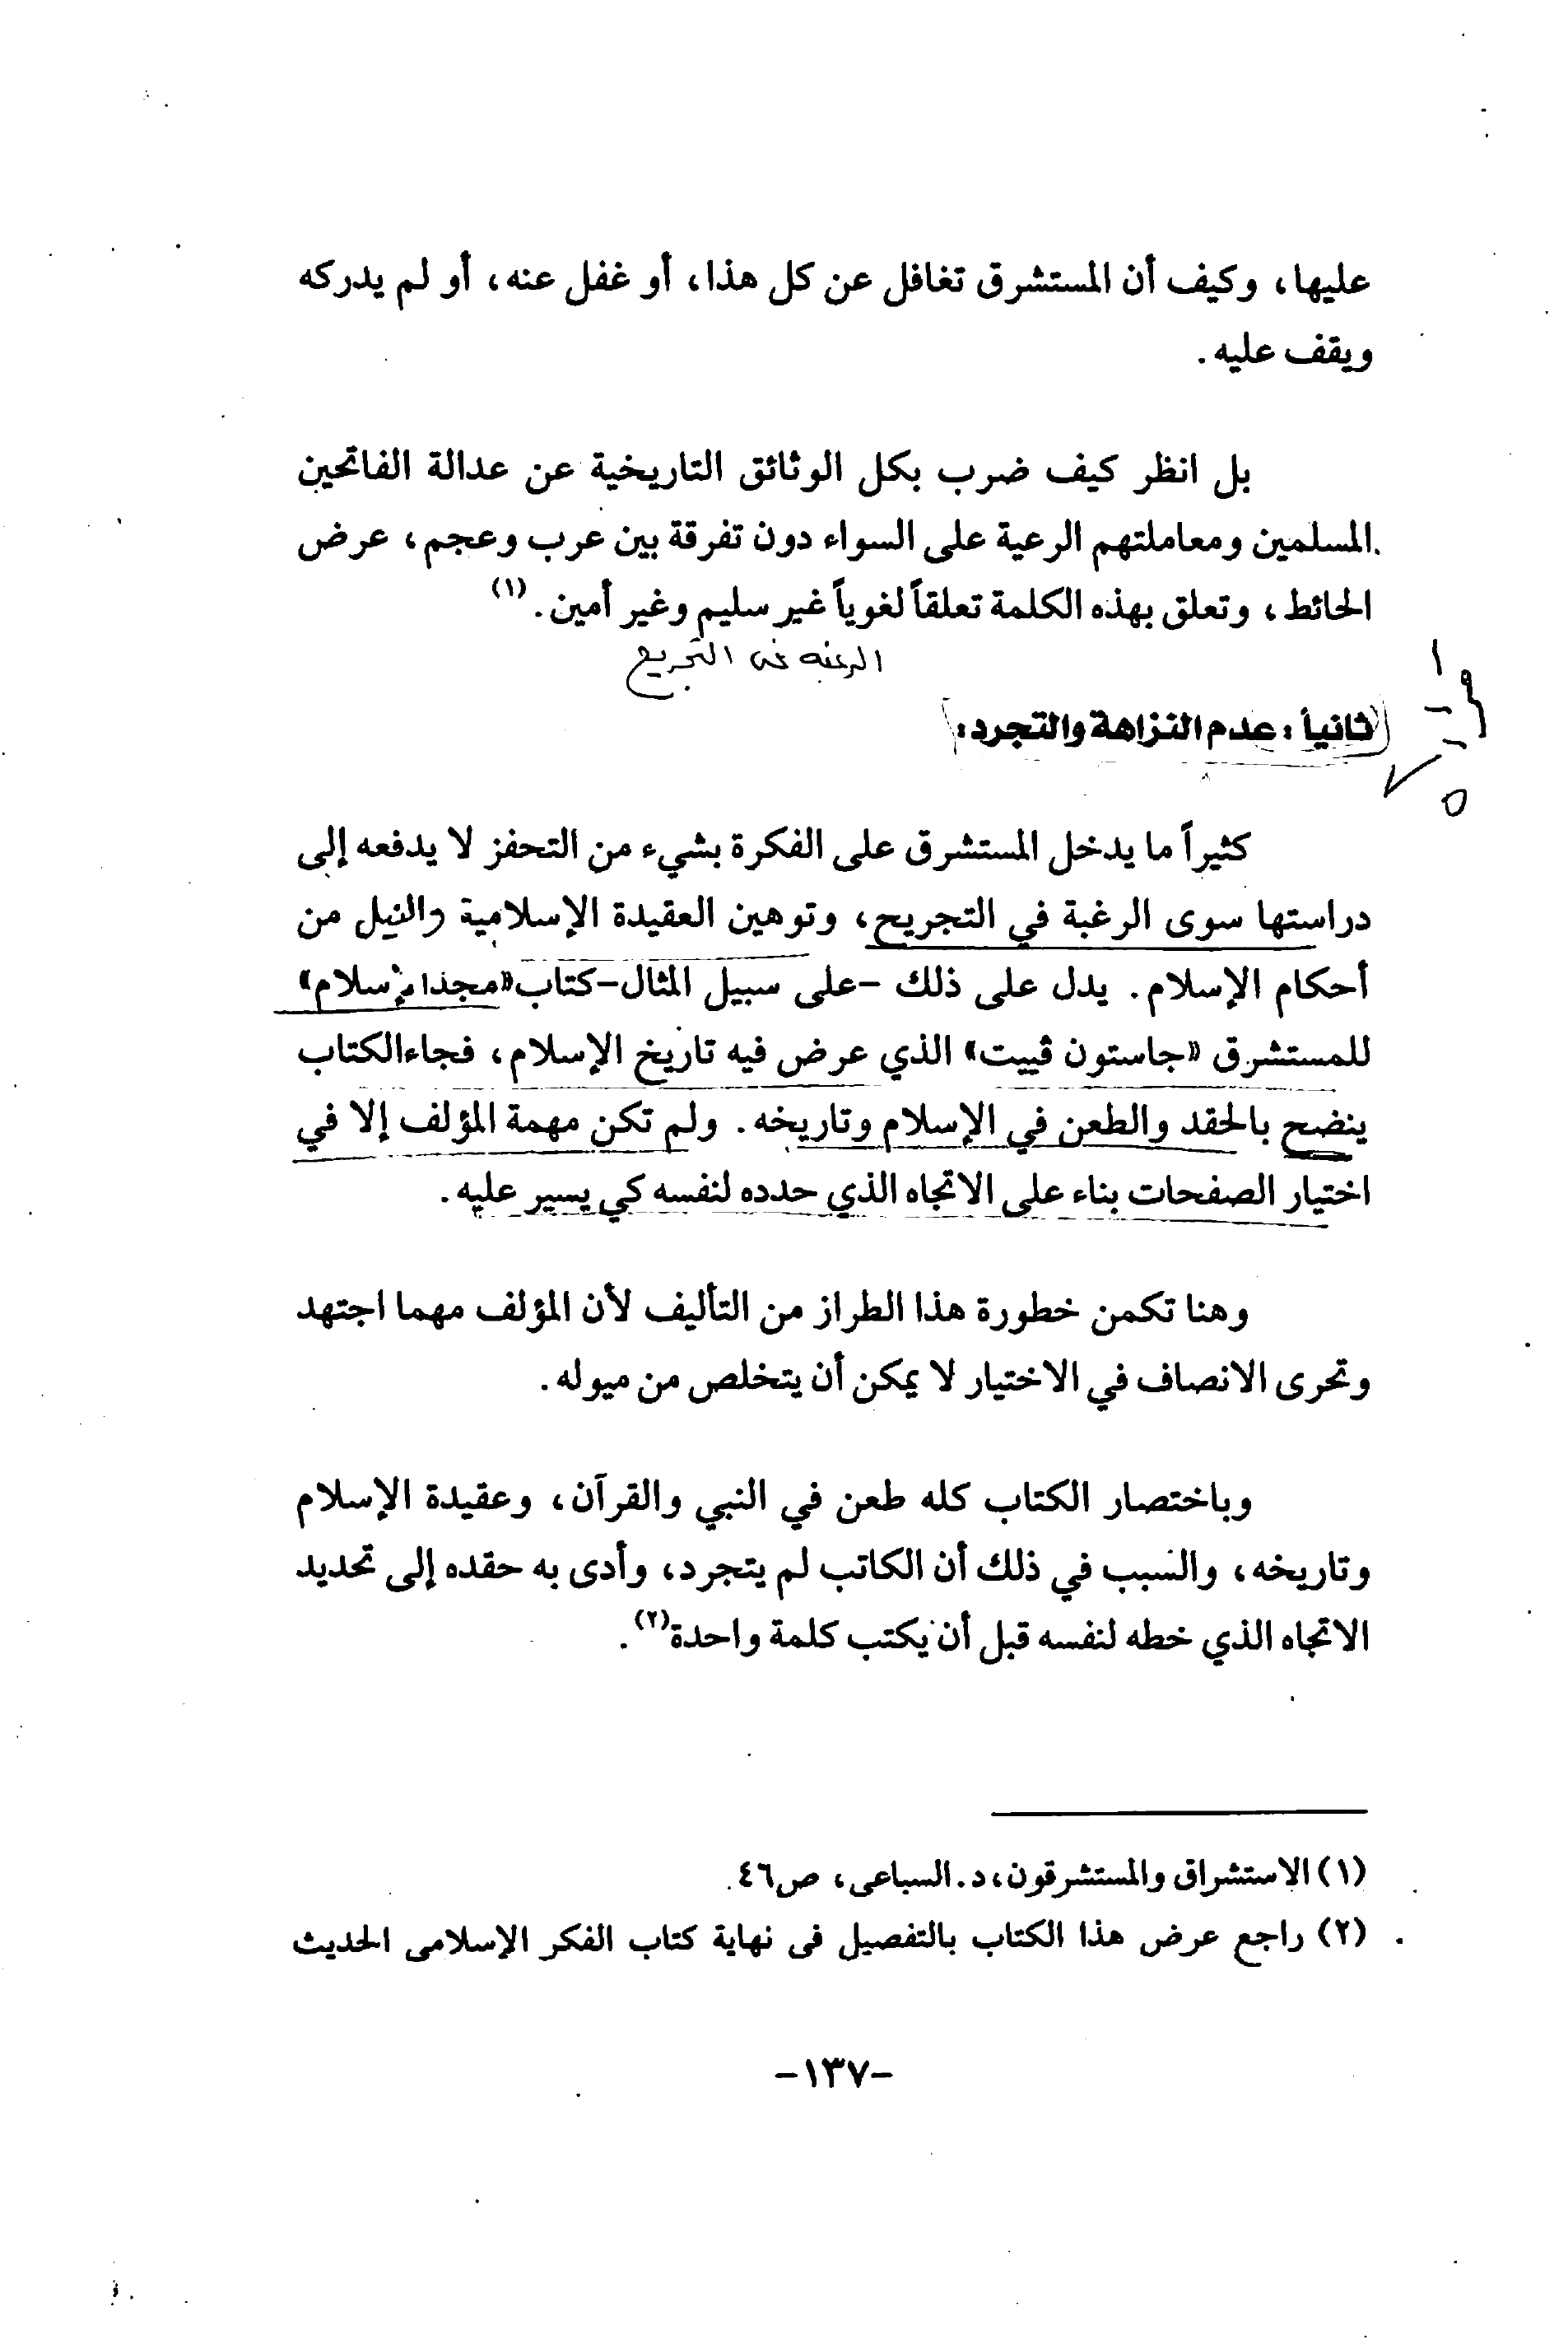 عليها، وكيف أن المستشرق تغافل عن كل هذا، أو غفل عنه، أو لم يدركه
ويقف عليه.
بل انظر كيف ضرب بكل الوثائق التاريخية عن عدالة الفاتحين
المسلمين ومعاملتهم الرعية على السواء دون تفرقة بين عرب وعجم، عرض
الحائط، وتعلق بهذه الكلمة تعلقاً لغوياً غير سليم وغير أمين.(١)
الرغبه في التجريح
ثانياً: عدم النزاهة والتجرد:
كثيراً ما يدخل المستشرق على الفكرة بشيء من التحفز لا يدفعه إلى
دراستها سوى الرغبة في التجريح، وتوهين العقيدة الإسلامية والنيل من
أحكام الإسلام. يدل على ذلك -على سبيل المثال-كتاب«مجد الإسلام»
للمستشرق «جاستون ڤييت» الذي عرض فيه تاريخ الإسلام، فجاءالكتاب
ينضح بالحقد والطعن في الإسلام وتاريخه. ولم تكن مهمة المؤلف إلا في
اختيار الصفحات بناء على الاتجاه الذي حدده لنفسه كي يسير عليه.
وهنا تكمن خطورة هذا الطراز من التأليف لأن المؤلف مهما اجتهد
وتحرى الانصاف في الاختيار لا يمكن أن يتخلص من ميوله.
وباختصار الكتاب كله طعن في النبي والقرآن، وعقيدة الإسلام
وتاريخه، والسبب في ذلك أن الكاتب لم يتجرد، وأدى به حقده إلى تحديد
الاتجاه الذي خطه لنفسه قبل أن يكتب كلمة واحدة(٢).
(١) الاستشراق والمستشرقون،د.السباعى، ص٤٦.
(٢) راجع عرض هذا الكتاب بالتفصيل فى نهاية كتاب الفكر الإسلامى الحديث
-١٣٧-